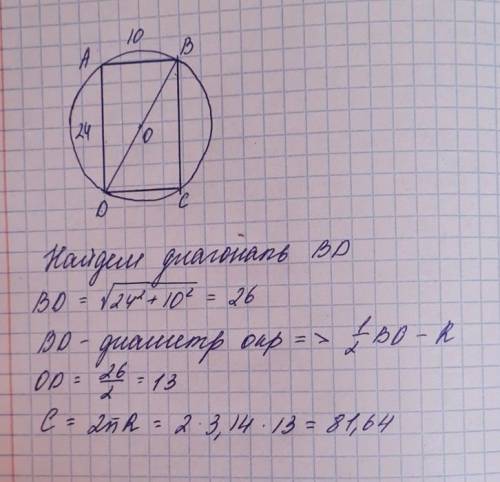 10
A B
24 O
D C
Найдем диагональ BD
BD = √24²+10² = 26
BD - диаметр окр => 1/2 BD - R
OD = 26/2 = 13
C = 2πR = 2 · 3,14 · 13 = 81,64